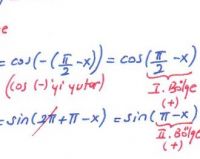 = cos(-(π/2 -x)) = cos(π/2 -x)
(cos (-)'yi yutar) I. Bölge
(+)
= sin(2π+π-x) = sin(π-x)
II. Bölge
(+)